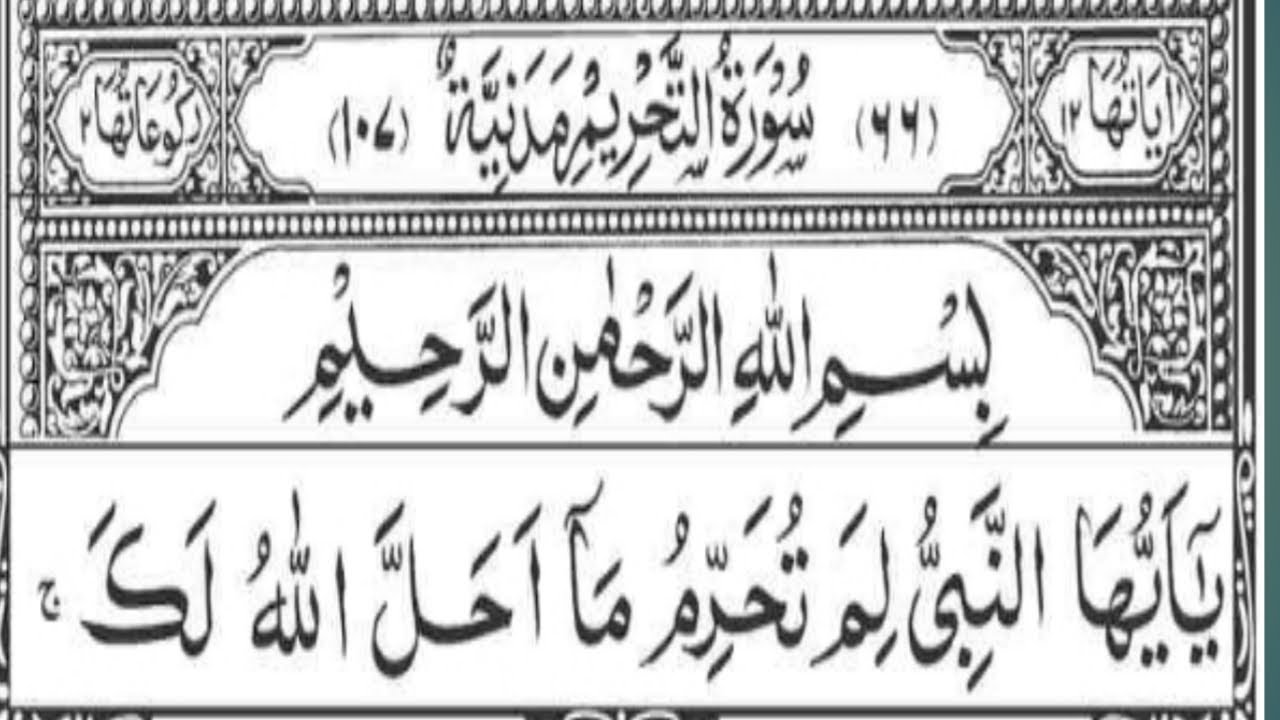 اٰيَاتُهَا ١٢ (٦٦) سُوْرَةُ التَّحْرِيْمِ مَدَنِيَّةٌ (١٠٧) رُكُوْعَاتُهَا ٢
بِسْمِ اللّٰهِ الرَّحْمٰنِ الرَّحِيْمِ
يٰۤاَيُّهَا النَّبِىُّ لِمَ تُحَرِّمُ مَاۤ اَحَلَّ اللّٰهُ لَكَ ۚ